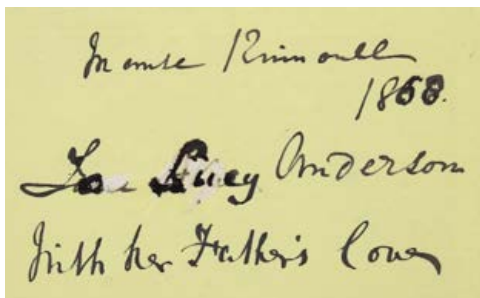 Manse Kinnoull
1868.
To Lucy Anderson
With her Father's Love